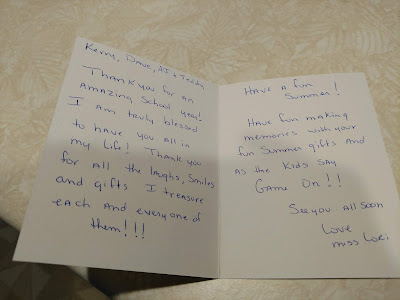 Kerry, Dave, AJ & Teddy
Thank you for an
amazing School year!
I am truly blessed
to have you all in
my life! Thank you
for all the laughs, Smiles
and gifts I treasure
each and everyone of
them!!!
Have a fun
Summer!
Have fun making
memories with your
fun Summer gifts and
as the kids say
Game On!!
See you all soon
Love
miss Lori